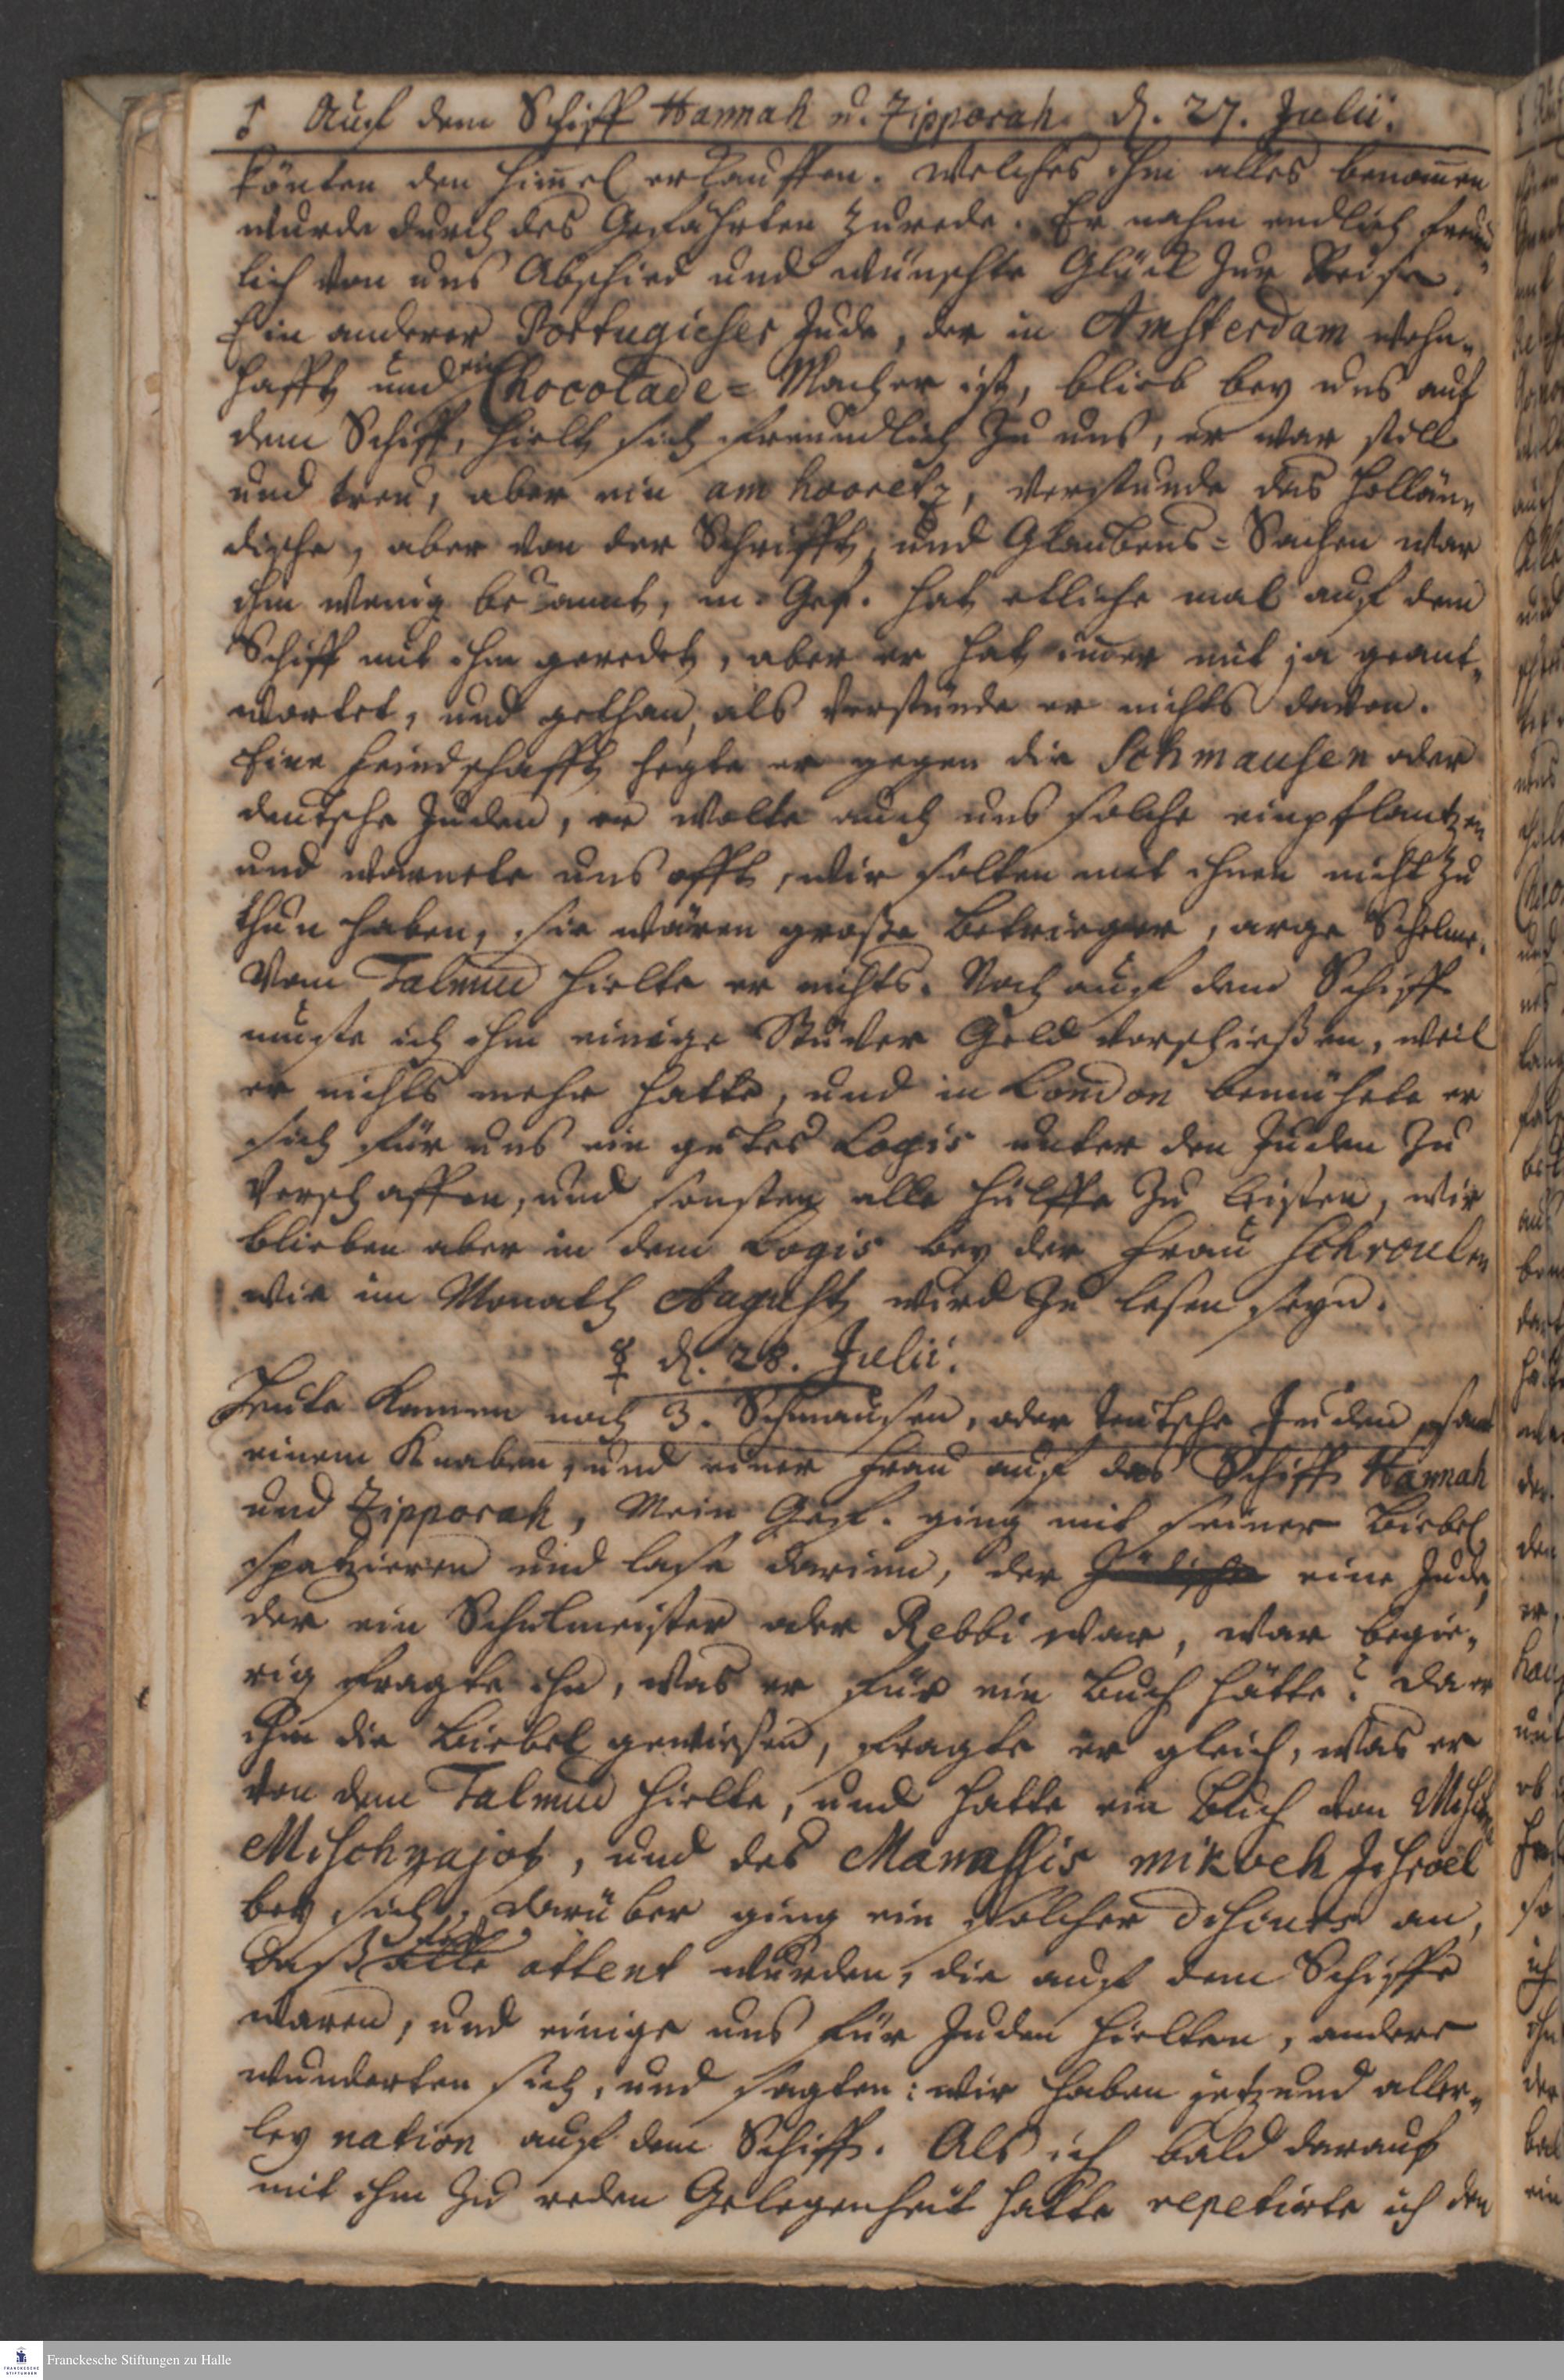 ♂ Auf dem Schiff Hannah u. Zipporah. d. 27. Julii.
könten den Him̄el erkauffen. welches ihm alles benom̄en
wurde durch des Gefährten Zurede. Er nahm endlich freund
lich von uns Abschied und wünschte Glück zur Reise.
Ein anderer Portugieser Jude, der in Amsterdam wohn-
hafft und ein Chocolade-Macher ist, blieb bey uns auf
dem Schiff, hielt sich freundlich zu uns, er war still
und treu, aber ein am hooretz, verstunde das Hollän-
dische, aber von der Schrifft, und Glaubens-Sachen war
ihm wenig bekannt, m. Gef. hat etliche mal auf dem
Schiff mit ihm geredet, aber er hat im̄er mit ja geant-
wortet, und gethan, als verstünde er nichts davon.
Eine Feindschafft hegte er gegen die Schmausen oder
deutsche Juden, er wolte auch uns solche einpflantzen
und warnete uns offt, wir solten mit ihnen nicht zu
thun haben, sie wären große Betrieger, arge Schelme.
Vom Talmud hielte er nichts. Noch auf dem Schiff
muste ich ihm einige Stüver Geld vorschießen, weil
er nichts mehr hatte, und in London bemühete er
sich für uns ein gutes Logis unter den Juden zu
verschaffen, und sonsten alle Hülffe zu leisten, wir
blieben aber in dem Logis bey der Frau Schroulen
wie im Monath August wird zu lesen seyn.
☿ d. 28. Julii.
Heute kamen noch 3. Schmausen, oder teutsche Juden, samt
einem Knaben, und einer Frau auf das Schiff Hannah
und Zipporah, Mein Gef. ging mit seiner Biebel
spatzieren und lase darinn, der eine Jude,
der ein Schulmeister oder Rebbi war, war begie-
rig fragte ihn, was er für ein Buch hätte? da er
ihm die Biebel gewiesen, fragte er gleich, was er
von dem Talmud hielte, und hatte ein Buch von
Mischnajot, und des Manassis mikveh Jisroel
bey sich, darüber ging ein solcher Discurs an,
daß alle attent wurden, die auf dem Schiffe
waren, und einige uns für Juden hielten, andere
wunderten sich, und sagten: wir haben jetzund aller-
ley nation auf dem Schiff. Als ich bald darauf
mit ihm zu reden Gelegenheit hatte repetirte ich den
Franckesche Stiftungen zu Halle